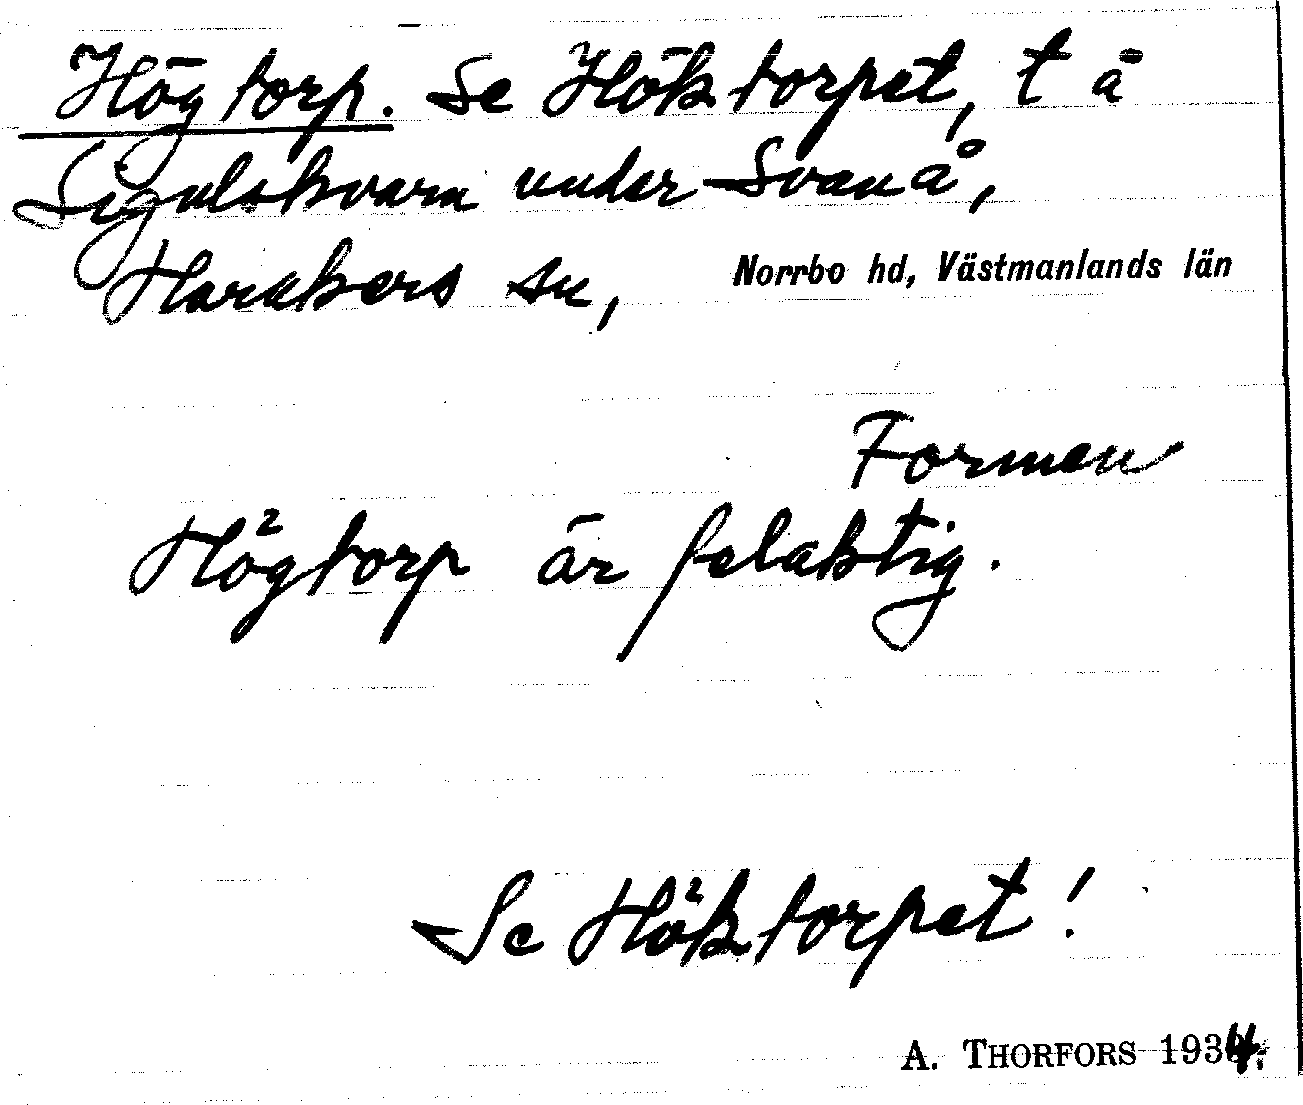 Högtorp. Se Höktorpet, t å
Signlskvarn under Svanå,
Harakers sn, Norrbo hd, Västmanlands län
Formen
Högtorp är felaktig.
Se Höktorpet!
A. THORFORS 1934.